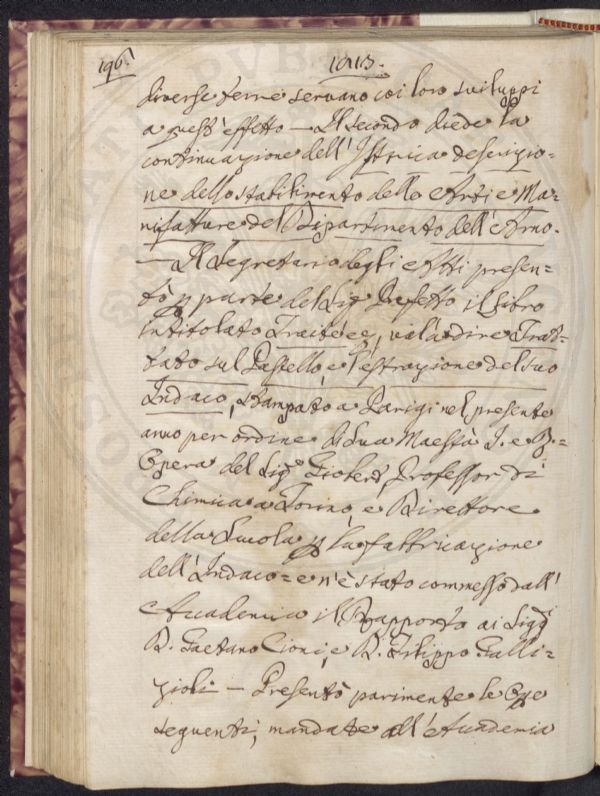 196.
1813.
diverse terre servano coi loro sviluppi
a quest'effetto — Il secondo diede la
continuazione dell'Istorica descrizio-
ne dello stabilimento delle Arti e Ma-
nifatture del Dipartimento dell'Arno.
— Il Segretario degli Atti presen-
tò p parte del Sig. Prefetto il libro
intitolato Traité &, vale a dire Trat-
tato sul Pastello, e l'estrazione del suo
Indaco, stampato a Parigi nel presente
anno per ordine di Sua Maestà I. e R. =
Opera del Sig. Giobert, Professor di
Chimica a Torino, e Direttore
della Scuola p la fabbricazione
dell'Indaco = e n'è stato commesso dall'
Accademia il Rapporto ai Sigg.
D. Gaetano Cioni, e D. Filippo Galli-
zioli — Presentò parimente le Ope
seguenti, mandate all'Accademia